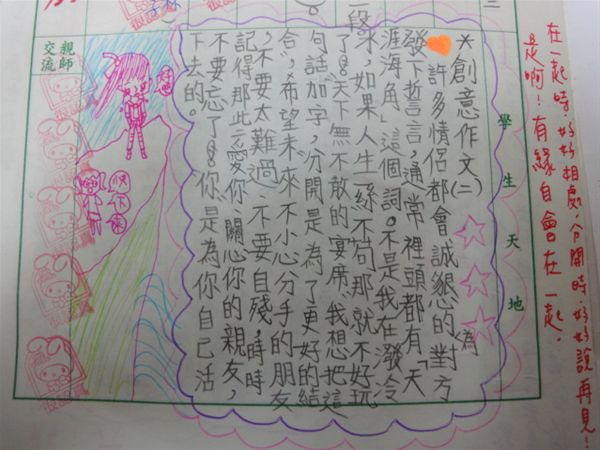 在一起時，好好相處，分開時，好好說再見！
是啊！有緣自會在一起．
學生天地
*創意作文(二)
許多情侶都會誠懇的為對方
發下誓言，通常裡頭都有「天
涯海角」這個詞。不是我在潑冷
水，如果人生一絲不苟，那就不好玩
了。天下無不敢的宴席，我想把這
句話加字，分開是為了更好的結
合，希望未來不小心分手的朋友
，不要太難過，不要自殘，時時
記得那些愛你、關心你的親友，
不要忘了。你是為你自己活
下去的。
段。
好吧
快下來
親師
交流